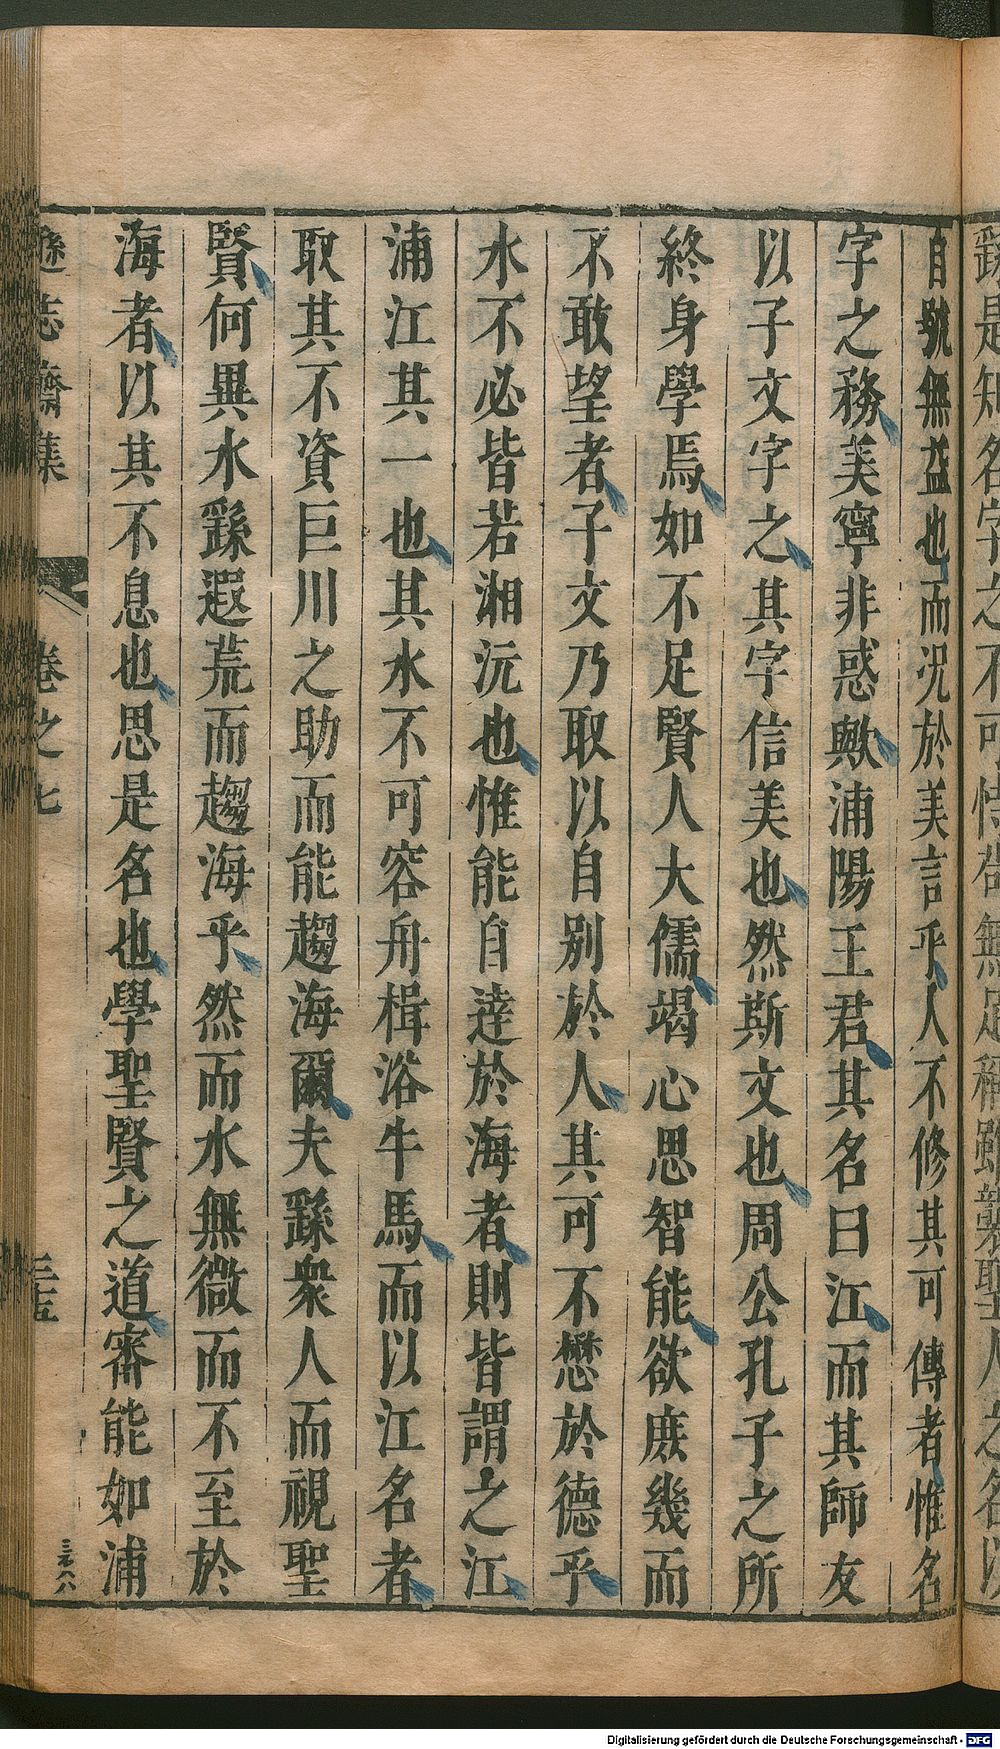 繇是知名字之不可恃苟無足稱雖襲聖人之名以
自號無益也而况於美言乎人不修其可傳者惟名
字之務美寧非惑歟浦陽王君其名曰江而其師友
以子文字之其字信美也然斯文也周公孔子之所
終身學焉如不足賢人大儒竭心思智能欲庶幾而
不敢望者子文乃取以自别於人其可不懋於德乎
水不必皆若湘沅也惟能自達於海者則皆謂之江
浦江其一也其水不可容舟楫浴牛馬而以江名者
取其不資巨川之助而能趨海爾夫繇衆人而視聖
賢何異水繇遐荒而趨海乎然而水無微而不至於
海者以其不息也思是名也學聖賢之道審能如浦
遜志齋集 卷之七 三十五
三百八八
Digitalisierung gefördert durch die Deutsche Forschungsgemeinschaft - DFG